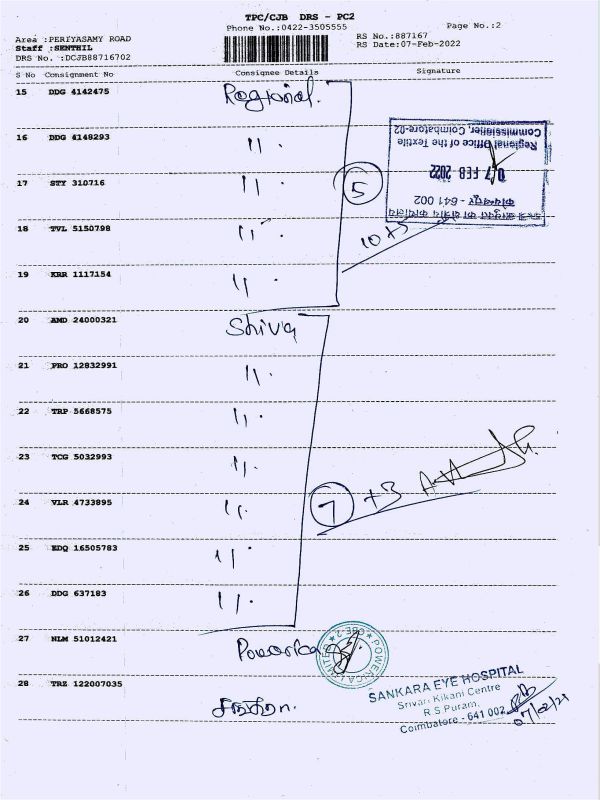 TPC/CJB DRS - PC2
Phone No.:0422-3505555
Page No.:2
Area :PERIYASAMY ROAD
Staff :SENTHIL
DRS No. :DCJB88716702
RS No.:887167
RS Date:07-Feb-2022
S No Consignment No Consignee Details Signature
15 DDG 4142475 Regional.
16 DDG 4148293 11 .
17 STY 310716 11 .
18 TVL 5150798 11 .
19 KRR 1117154 11 .
5
10+5
Regional Office of the Textile
Commissioner, Coimbatore-02
07 FEB 2022
कोयम्बत्तूर - 641 002
20 AMD 24000321 Shiva
21 PRO 12832991 11 .
22 TRP 5668575 11 .
23 TCG 5032993 11 .
24 VLR 4733895 11 .
25 EDQ 16505783 11 .
26 DDG 637183 11 .
7 +3
27 NLM 51012421 Powerica
POWERICA LIMITED
CBE-2
28 TRZ 122007035
SANKARA EYE HOSPITAL
Srivari Kikani Centre
R.S Puram,
Coimbatore - 641 002